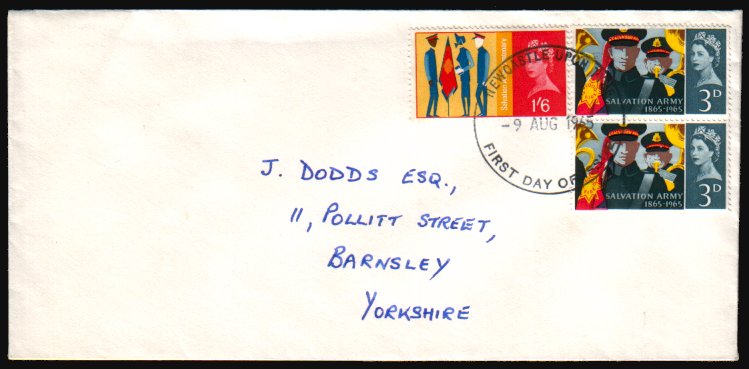 Salvation Army Centenary
1'6
SALVATION ARMY
1865-1965
3D
SALVATION ARMY
1865-1965
3D
NEWCASTLE UPON
-9 AUG 1965
FIRST DAY OF
J. DODDS ESQ.,
11, POLLITT STREET,
BARNSLEY
YORKSHIRE